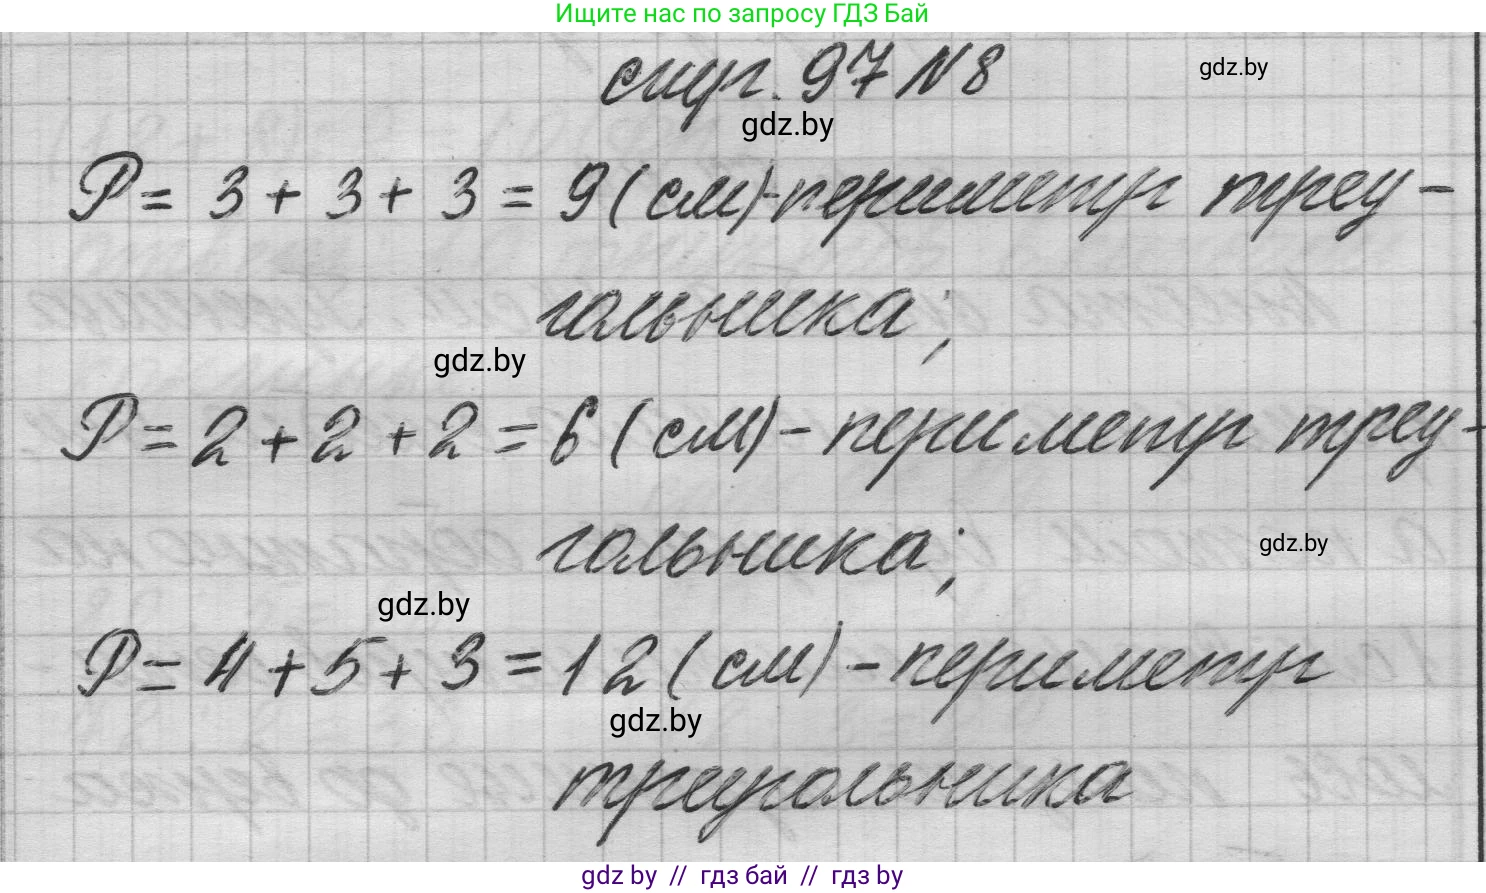 Ищите нас по запросу ГДЗ Бай
стр. 97 N 8
gdz.by
gdz.by
P = 3 + 3 + 3 = 9 (см) - периметр треу -
гольника;
gdz.by
P = 2 + 2 + 2 = 6 (см) - периметр треу -
гольника;
gdz.by
gdz.by
P = 4 + 5 + 3 = 12 (см) - периметр
gdz.by
треугольника
gdz by // гдз бай // гдз by